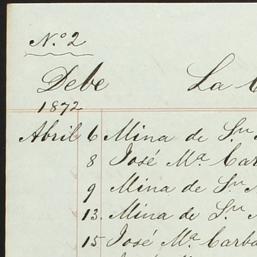 N.º 2
Debe La
1872
Abril 6 Mina de Sⁿ
8 José Mª Car
9 Mina de Sⁿ
13. Mina de Sⁿ
15 José Mª Carba